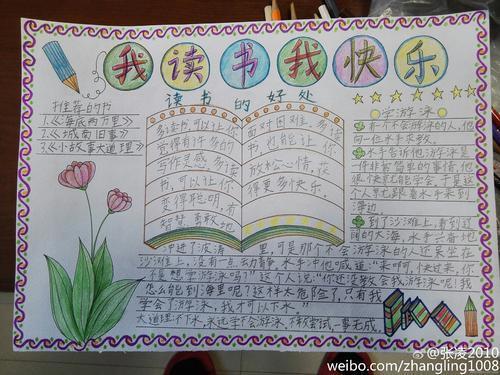 我读书我快乐
读书的好处
推荐的书
1.《海底两万里》
2.《城南旧事》
3.《小故事大道理》
多读书,可以让你
觉得有许多的
写作灵感。多读
书,可以让你
变得聪明,有
智慧,勇敢地
面对困难。多读
书,也能让你
放松心情,获
得更多快乐。
学游泳
有个不会游泳的人,他
向一位水手求教。
水手告诉他游泳是
件非常简单的事情,他
很快就能学会。于是这
个人就跟着水手来到
海边
到了沙滩上,看到这
阔的大海,水手兴奋地
冲进了波涛里,可是那个不会游泳的人还坐在
沙滩上,没有一点动静。水手冲他喊道:“来啊,快过来,你
不是想学游泳吗?”这个人说:“你还没教会我游泳呢!我
怎么能到海里呢?这样太危险了,只有我
学会了游泳,我才可以下水。”
大道理:不下水,永远学不会游泳,不敢尝试,一事无成。
@张凌2010
weibo.com/zhangling1008